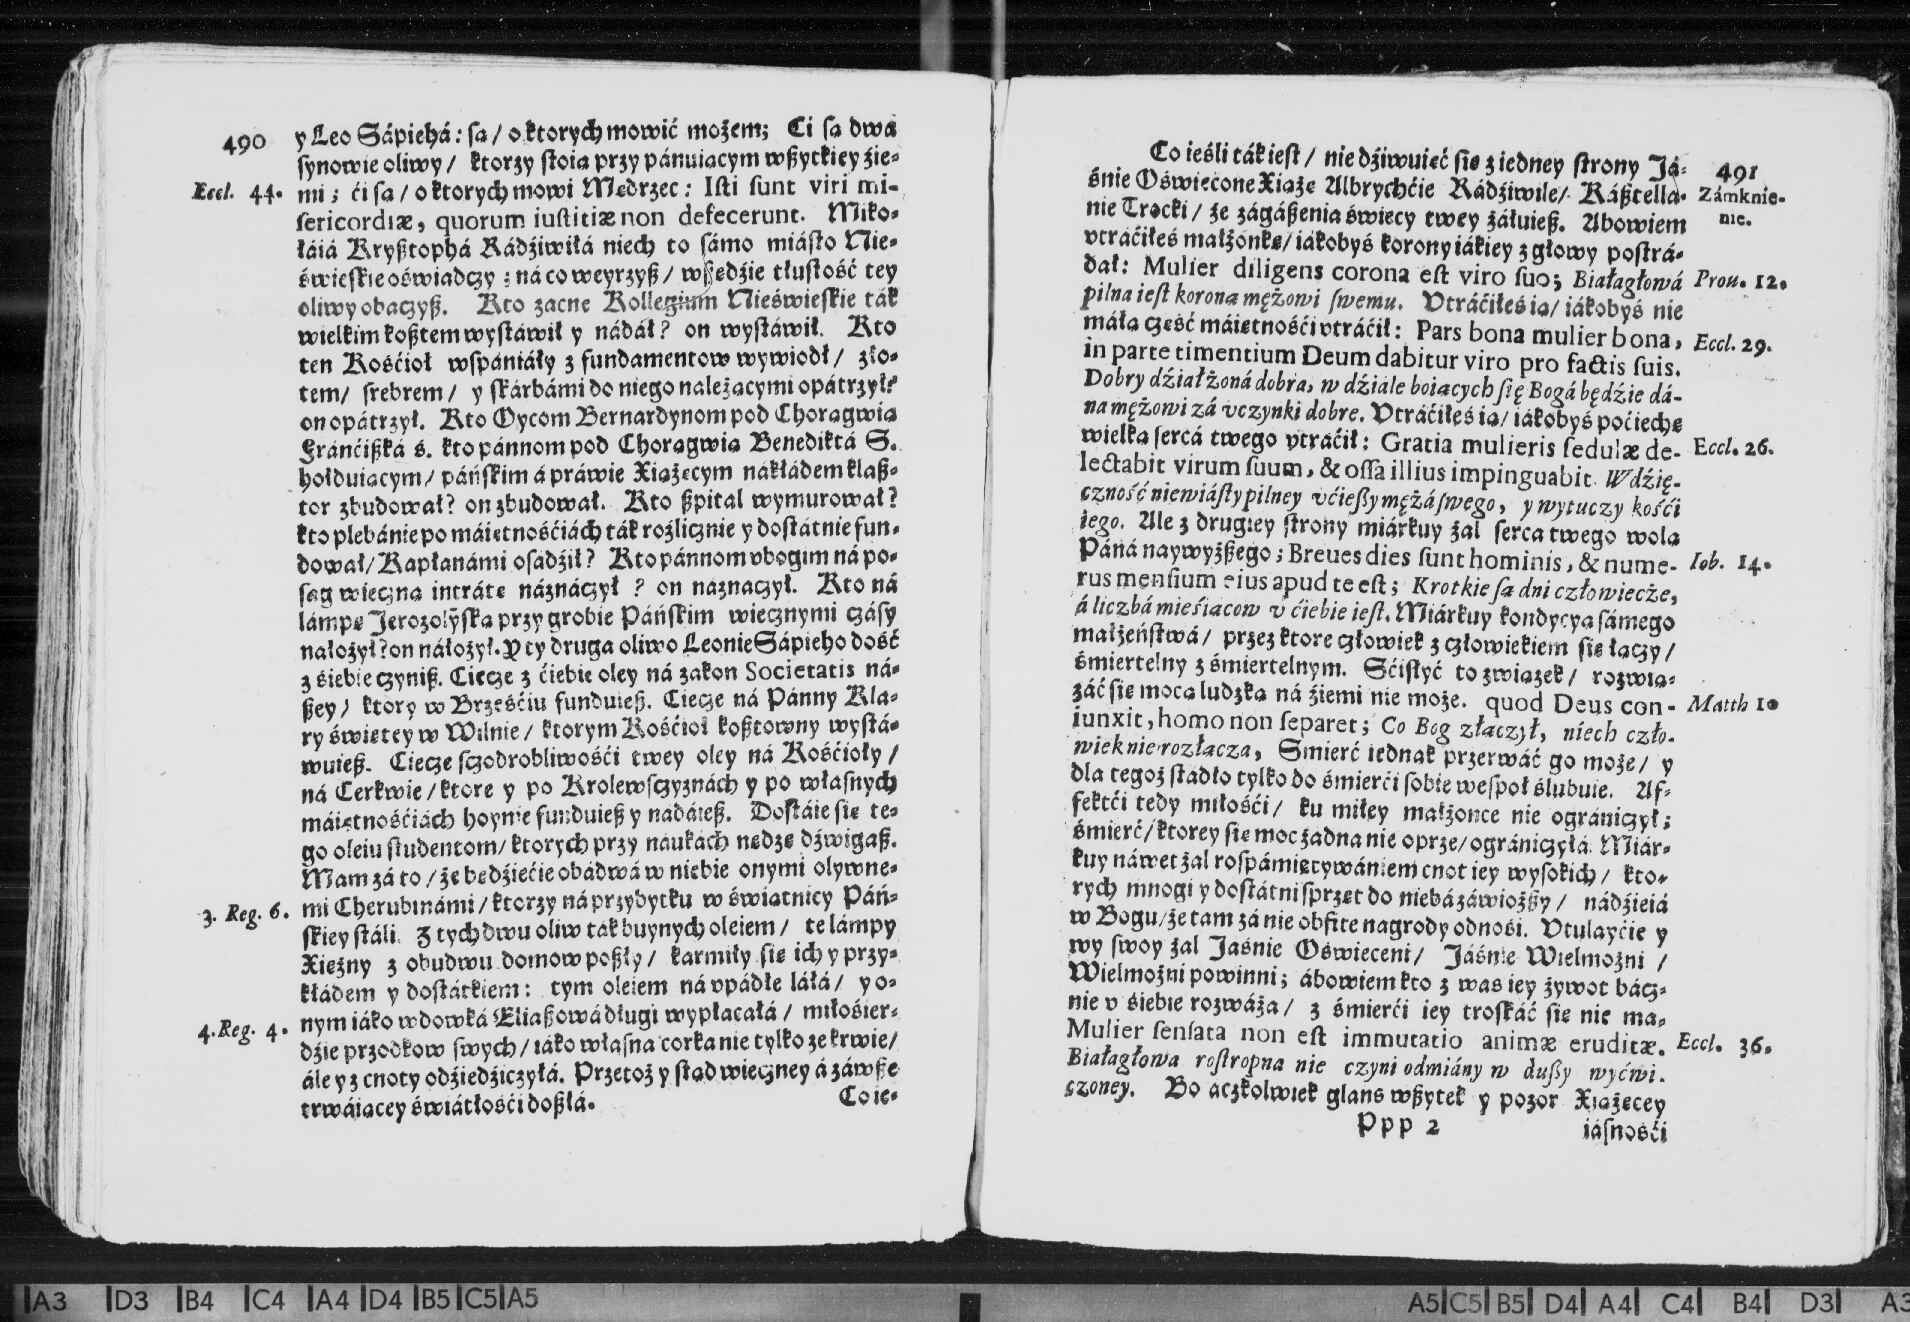 490
y Leo Sápiehá: są/ o ktorych mowić możem; Ci są dwá
synowie oliwy/ ktorzy stoią przy pánuiącym wßytkiey źie-
Eccl. 44. mi; ći są/ o ktorych mowi Mędrzec: Isti sunt viri mi-
sericordiæ, quorum iustitiæ non defecerunt. Miko-
łáiá Kryßtophá Rádźiwiłá niech to sámo miásto Nie-
świeskie oświadczy; ná co weyrzyß/ wszędźie tłustość tey
oliwy obaczyß. Kto zacne Kollegium Nieświeskie ták
wielkim koßtem wystáwił y nádał? on wystáwił. Kto
ten Kośćioł wspániáły z fundamentow wywiodł/ zło-
tem/ srebrem/ y skárbámi do niego należącymi opátrzył?
on opátrzył. Kto Oycom Bernardynom pod Chorągwią
Fránćißká ś. kto pánnom pod Chorągwią Benediktá S.
hołduiącym/ páńskim á práwie Xiążęcym nakłádem klaß-
tor zbudował? on zbudował. Kto ßpital wymurował?
kto plebánie po máiętnośćiách ták rożlicznie y dostátnie fun-
dował/ Kapłanámi osadźił? Kto pánnom vbogim ná po-
sag wieczną intrátę náznáczył? on naznaczył. Kto ná
lámpę Jerozolyską przy grobie Páńskim wiecznymi czásy
nałożył? on náłożył. Y ty druga oliwo Leonie Sápieho dość
z śiebie czyniß. Ciecze z ćiebie oley ná zakon Societatis ná-
ßey/ ktory w Brześćiu funduieß. Ciecze ná Pánny Kla-
ry świętey w Wilnie/ ktorym Kośćioł koßtowny wystá-
wuieß. Ciecze sczodrobliwośći twey oley ná Kośćioły/
ná Cerkwie/ ktore y po Krolewsczyznách y po własnych
máiętnośćiách hoynie funduieß y nadáieß. Dostáie się te-
go oleiu studentom/ ktorych przy naukách nędzę dźwigaß.
Mam zá to/ że będźiećie obádwá w niebie onymi olywne-
3. Reg. 6. mi Cherubinámi/ ktorzy ná przybytku w świątnicy Páń-
skiey stáli. Z tych dwu oliw ták buynych oleiem/ te lámpy
Xiężny z obudwu domow poßły/ karmiły się ich y przy-
kłádem y dostátkiem: tym oleiem ná vpádłe láłá/ y o-
4. Reg. 4. nym iáko wdowká Eliaßowá długi wypłacałá/ miłośier-
dźie przodkow swych/ iáko własna corka nie tylko ze krwie/
ále y z cnoty odźiedźiczyłá. Przetoż y stąd wieczney á záwße
trwáiącey świátłośći doßłá.
Co ie-
491
Co ieśli ták iest/ nie dźiwuięć się z iedney strony Já-
śnie Oświecone Xiążę Albrychćie Rádźiwile/ Káßtella-
Zámknie-
nie.
nie Trocki/ że zágáßenia świecy twey żáłuieß. Abowiem
vtráćiłeś małżonkę/ iákobyś korony iákiey z głowy postrá-
dał: Mulier diligens corona est viro suo; Białagłowá
Prou. 12.
pilna iest korona mężowi swemu. Vtráćiłeś ią/ iákobyś nie
máłą część máiętnośći vtráćił: Pars bona mulier bona,
Eccl. 29.
in parte timentium Deum dabitur viro pro factis suis.
Dobry dźiał żoná dobra, w dźiále boiących się Bogá będźie dá-
na mężowi zá vczynki dobre. Vtráćiłeś ią/ iákobyś poćiechę
wielką sercá twego vtráćił: Gratia mulieris sedulæ de-
Eccl. 26.
lectabit virum suum, & ossa illius impinguabit. Wdźię-
czność niewiásty pilney vćießy mężá swego, y wytuczy kośći
iego. Ale z drugiey strony miárkuy żal serca twego wolą
Páná naywyżßego; Breues dies sunt hominis, & nume-
Iob. 14.
rus mensium eius apud te est; Krotkie są dni człowiecże,
á liczbá mieśiącow v ćiebie iest. Miárkuy kondycyą sámego
małżeństwá/ przez ktore człowiek z człowiekiem się łączy/
śmiertelny z śmiertelnym. Sćistyć to związek/ rozwią-
záć się mocą ludzką ná źiemi nie może. quod Deus con-
Matth 10
iunxit, homo non separet; Co Bog złączył, niech czło-
wiek nie rozłącza, Smierć iednak przerwáć go może/ y
dla tegoż stádło tylko do śmierći sobie wespoł ślubuie. Af-
fektći tedy miłośći/ ku miłey małżonce nie ográniczył;
śmierć/ ktorey się moc żadna nie oprze/ ográniczyłá. Miár-
kuy náwet żal rospámiętywániem cnot iey wysokich/ kto-
rych mnogi y dostátni sprzęt do niebá záwiożßy/ nádźieiá
w Bogu/ że tam zá nie obfite nagrody odnośi. Vtulayćie y
wy swoy żal Jaśnie Oświeceni/ Jáśnie Wielmożni/
Wielmożni powinni; ábowiem kto z was iey żywot bácz-
nie v śiebie rozważa/ z śmierći iey troskáć się nie ma,
Mulier sensata non est immutatio animæ eruditæ.
Eccl. 36.
Białagłowa rostropna nie czyni odmiány w dußy wyćwi-
czoney. Bo aczkolwiek glans wßytek y pozor Xiążęcey
Ppp 2
iásnośći